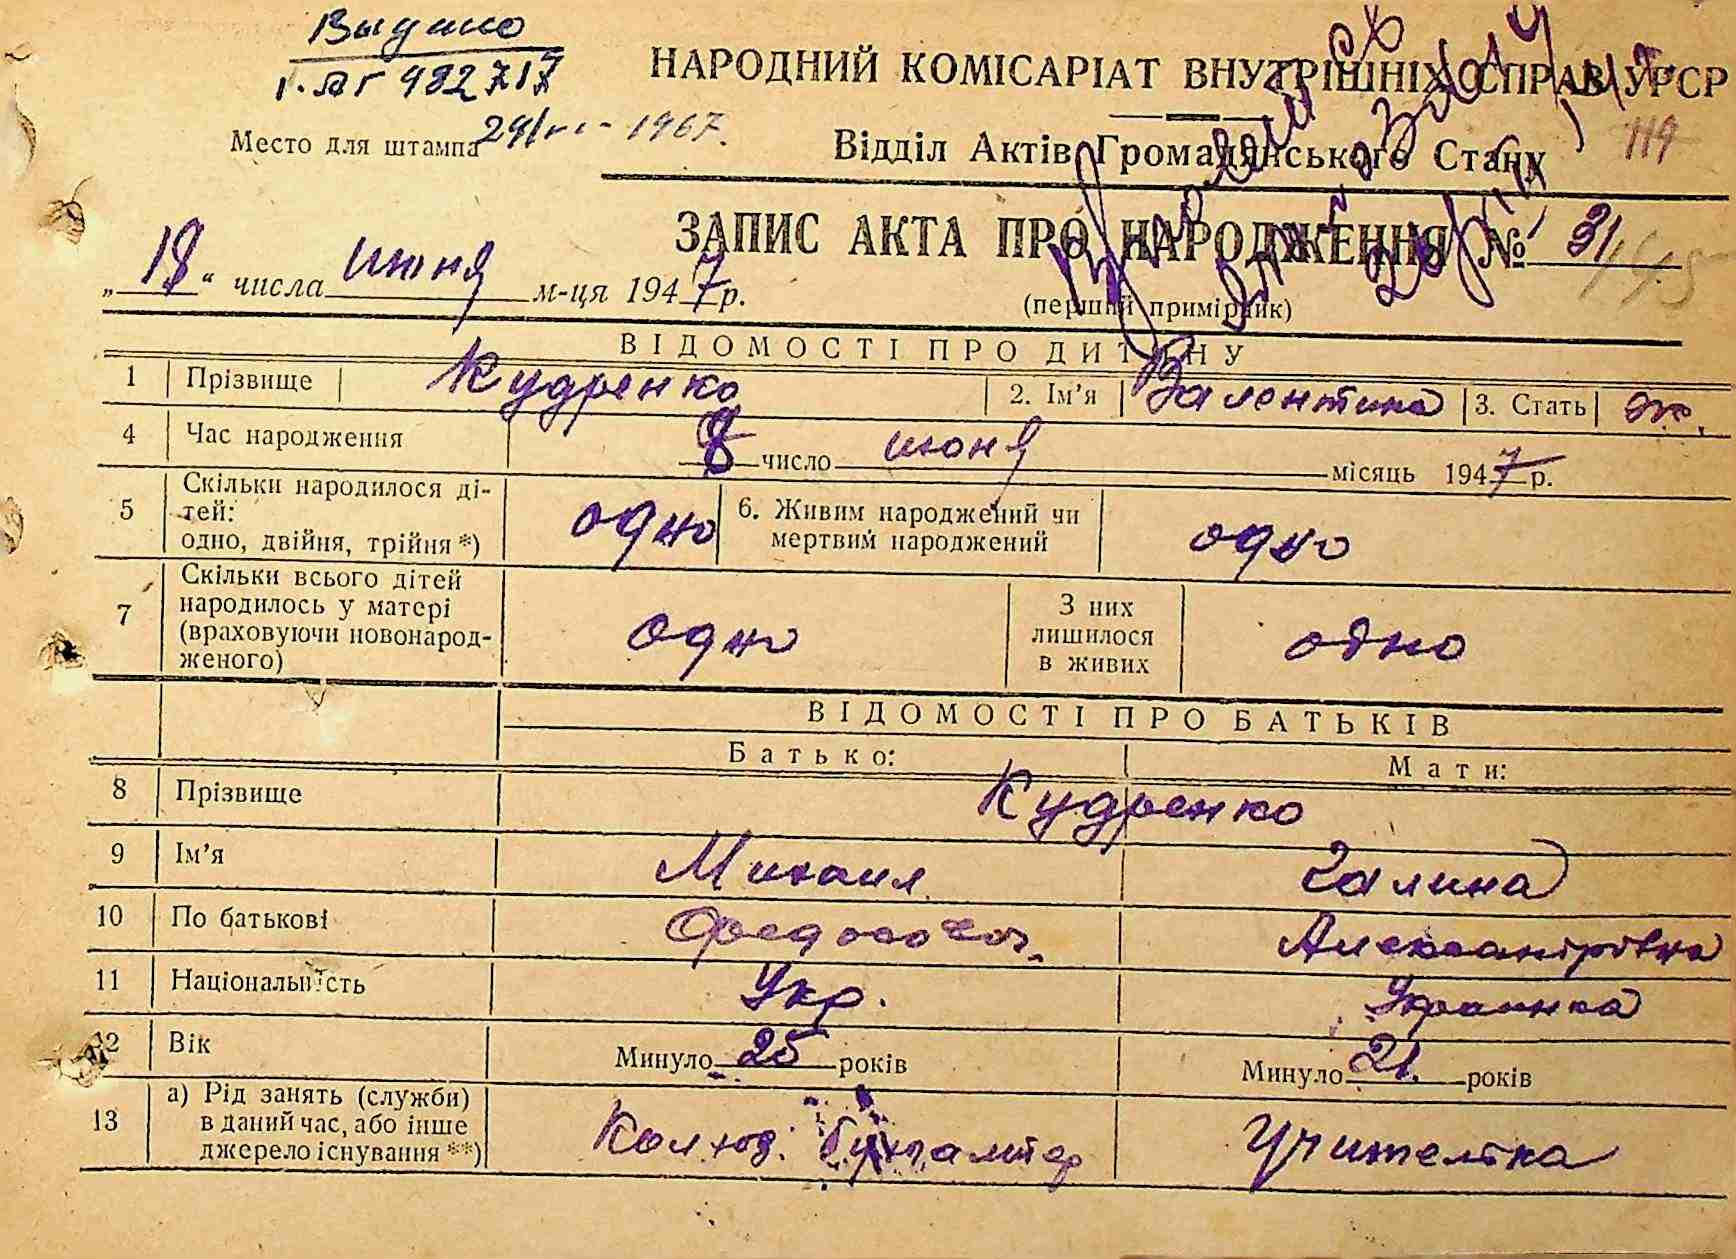 Выдано
982717
НАРОДНИЙ КОМІСАРІАТ ВНУТРІШНІХ СПРАВ УРСР
Место для штампа
29/VI - 1967.
Відділ Актів Громадянського Стану
119
ЗАПИС АКТА ПРО НАРОДЖЕННЯ № 31
„18" числа июня м-ця 1947 р.
(перший примірник)
ВІДОМОСТІ ПРО ДИТИНУ
1 Прізвище Кудренко 2. Ім'я Валентина 3. Стать ж.
4 Час народження 8 число июня місяць 1947 р.
5 Скільки народилося ді-
тей:
одно, двійня, трійня *) одно 6. Живим народжений чи
мертвим народжений одно
7 Скільки всього дітей
народилось у матері
(враховуючи новонарод-
женого) одно З них
лишилося
в живих одно
ВІДОМОСТІ ПРО БАТЬКІВ
Батько: Мати:
8 Прізвище Кудренко
9 Ім'я Михаил Галина
10 По батькові Александрівна
11 Національність Укр. Украинка
12 Вік Минуло 25 років Минуло 21. років
13 а) Рід занять (служби)
в даний час, або інше
джерело існування **) бухгалтер Учителка